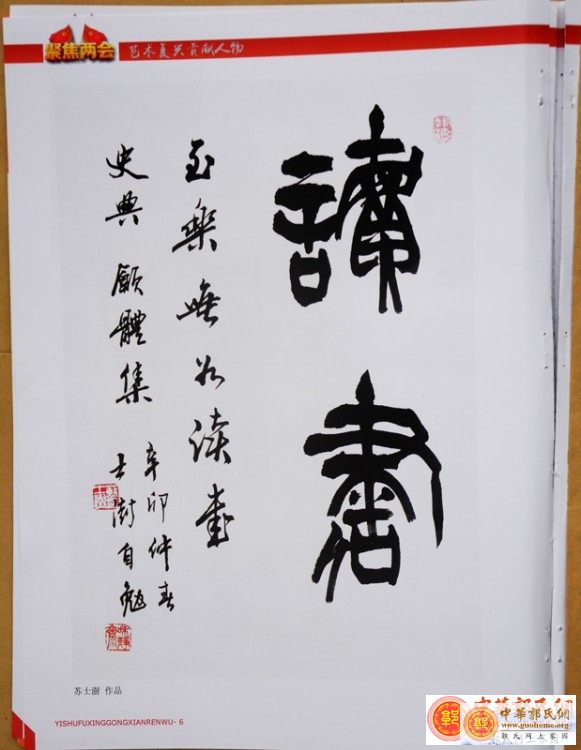 聚焦两会
艺术复兴贡献人物
讀書
至樂無如讀書
史典顧體集
辛卯仲春
士澍自勉
苏士澍 作品
YISHUFUXINGGONGXIANRENWU- 6
中華郭氏網
www.guohome.com
郭氏网上家園